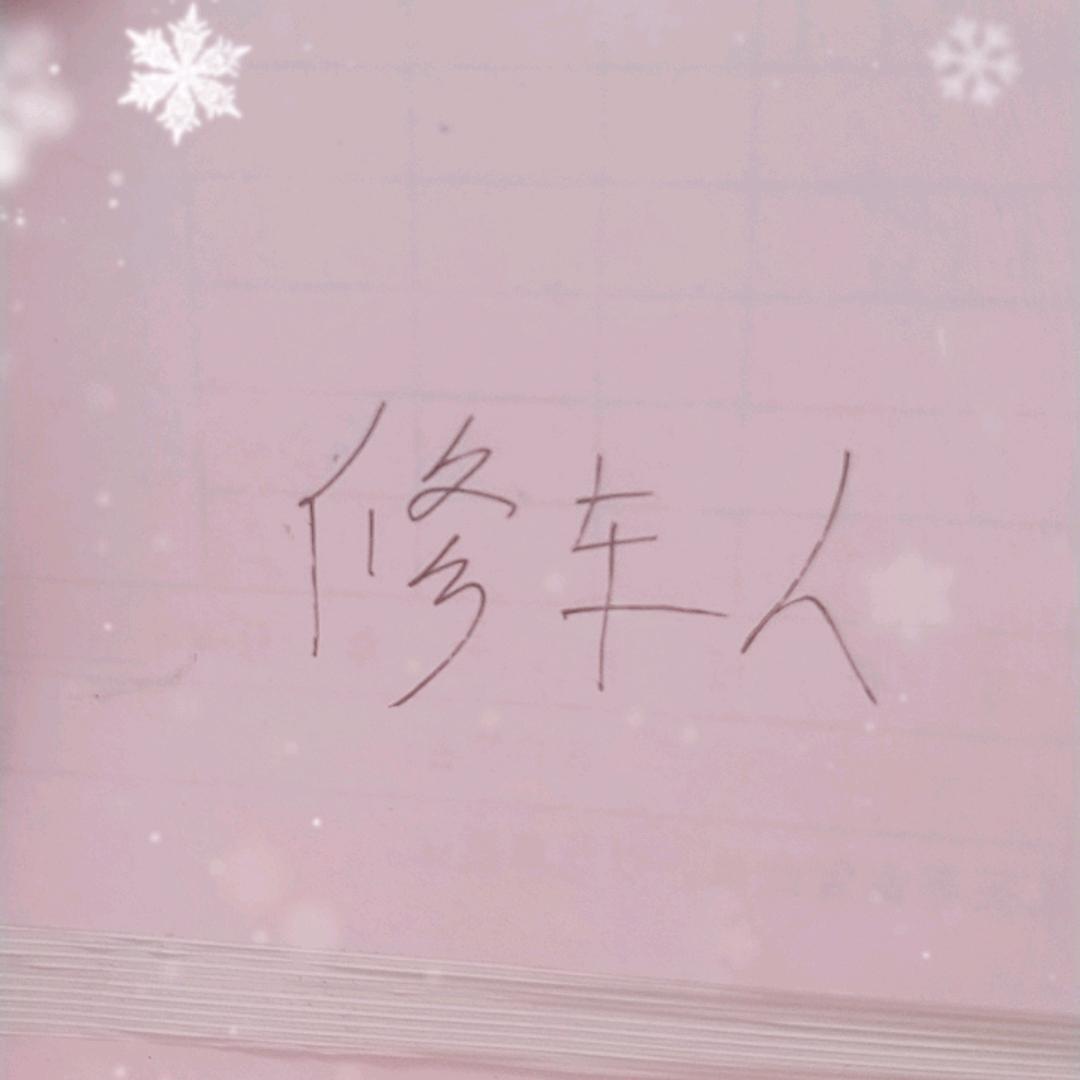 修车人